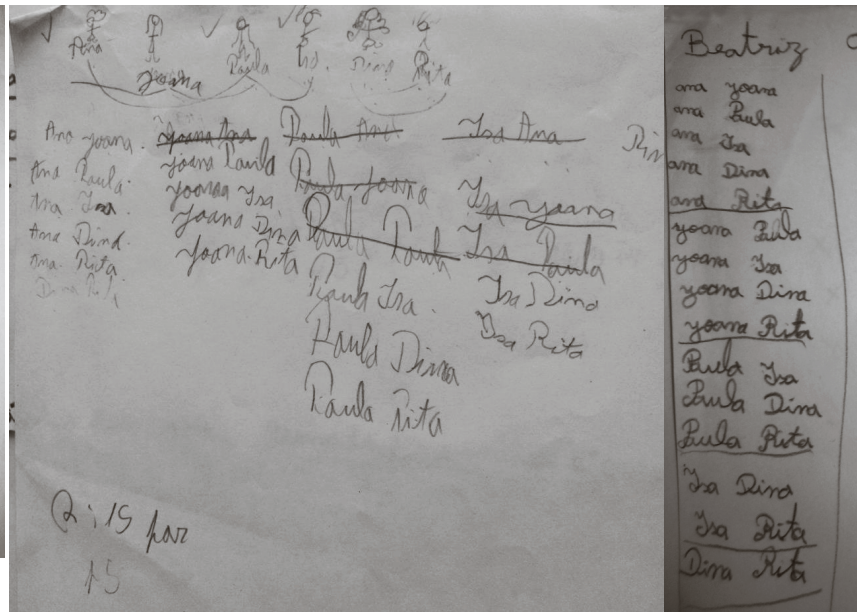 Ana
Joana
Paula
Isa
Dina
Rita
Ana Joana.
Ana Paula.
Ana Isa.
Ana Dina.
Ana. Rita
Dina Rita
Joana Ana
Joana Paula
Joana Isa
Joana Dina
Joana. Rita
Paula Ana
Paula Joana
Paula Paula
Paula Isa.
Paula Dina
Paula Rita
Isa Ana
Isa Joana
Isa Paula
Isa Dina
Isa Rita
Din
R: 15 par
15
Beatriz
ana Joana
ana Paula
ana Isa
ana Dina
ana Rita
Joana Paula
Joana Isa
Joana Dina
Joana Rita
Paula Isa
Paula Dina
Paula Rita
Isa Dina
Isa Rita
Dina Rita